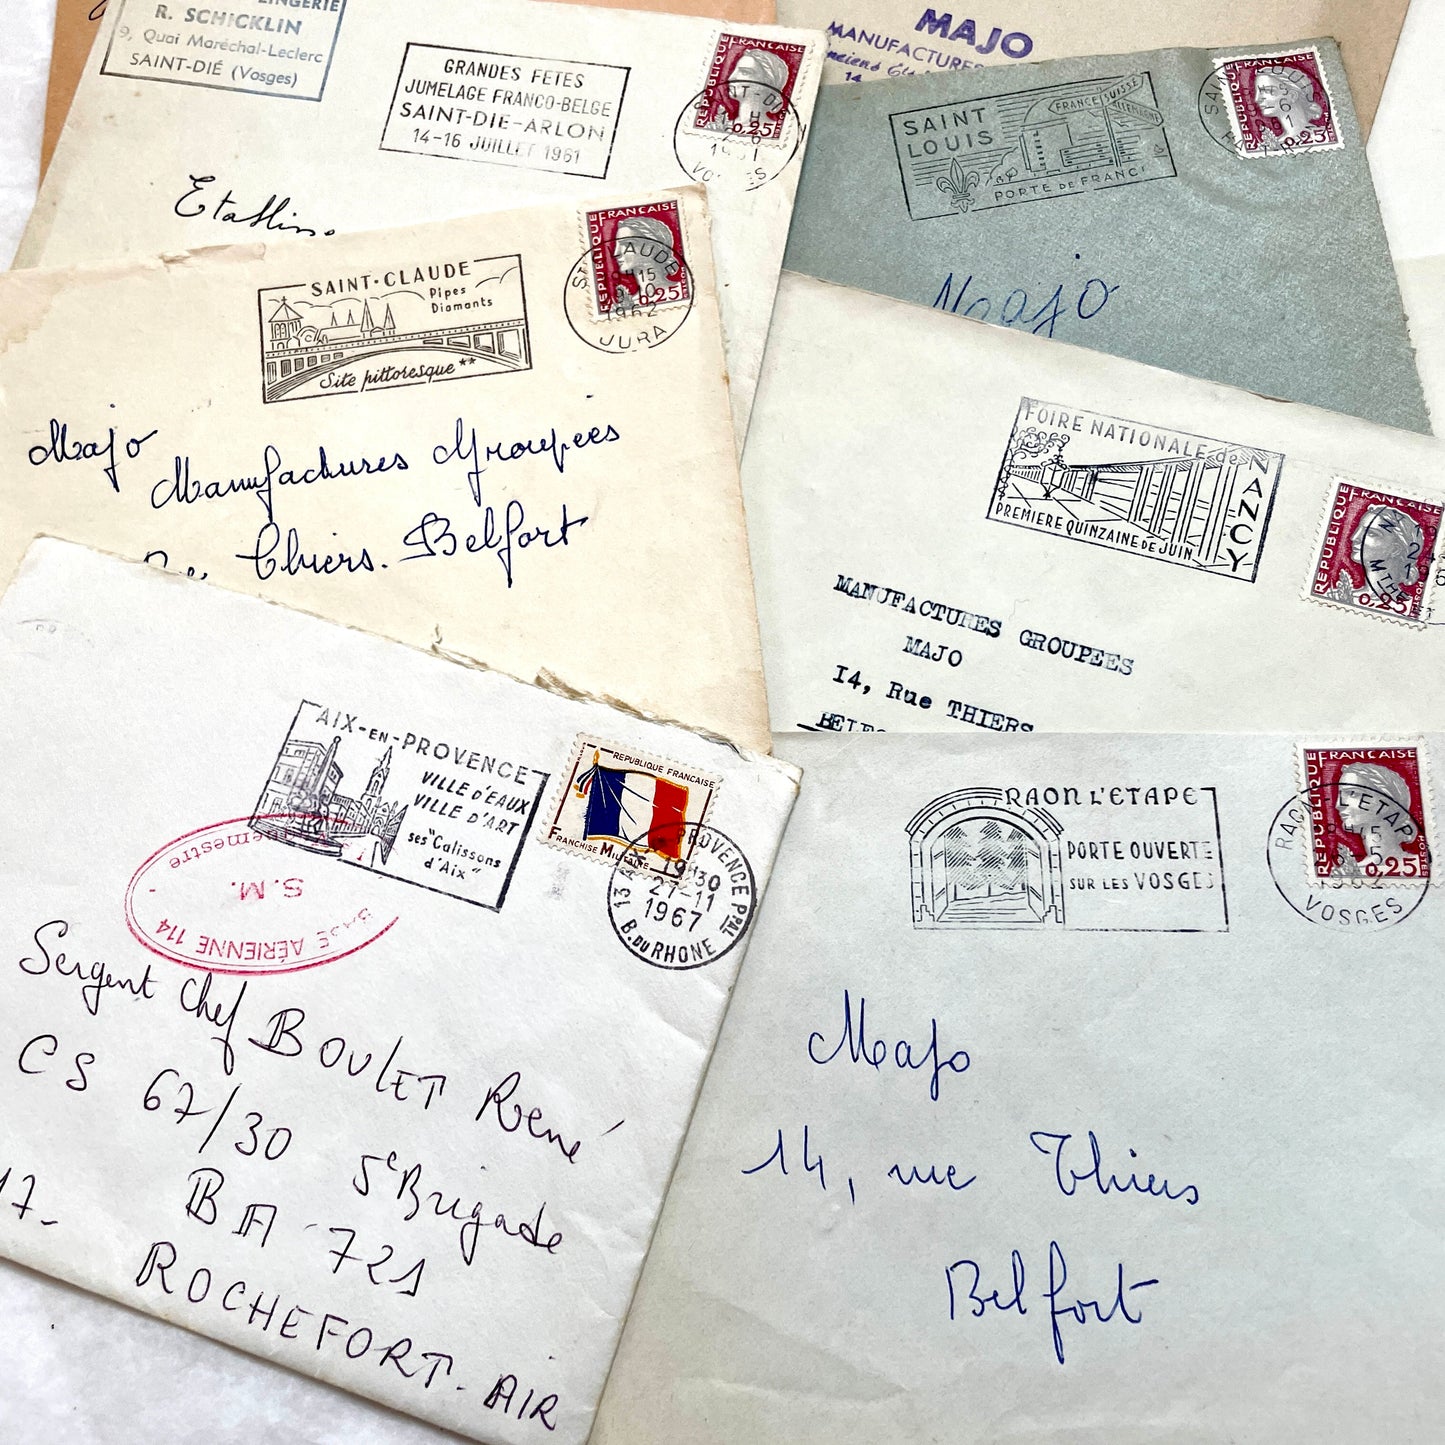 LINGERIE
R. SCHICKLIN
9, Quai Maréchal-Leclerc
SAINT-DIÉ (Vosges)
GRANDES FETES
JUMELAGE FRANCO-BELGE
SAINT-DIE-ARLON
14-16 JUILLET 1961
REPUBLIQUE FRANÇAISE
0,25
1961
VOSGES
MAJO
MANUFACTURES
14
SAINT
LOUIS
FRANCE SUISSE
ALLEMAGNE
PORTE DE FRANCE
REPUBLIQUE FRANÇAISE
0,25
SAINT LOUIS
Majo
SAINT-CLAUDE
Pipes
Diamants
Site pittoresque**
REPUBLIQUE FRANÇAISE
0,25
ST CLAUDE
1962
JURA
Majo
Manufactures Groupées
Thiers. Belfort
FOIRE NATIONALE de
NANCY
PREMIERE QUINZAINE DE JUIN
REPUBLIQUE FRANÇAISE
0,25
POSTES
MANUFACTURES GROUPEES
MAJO
I4, Rue THIERS
AIX-EN-PROVENCE
VILLE D'EAUX
VILLE D'ART
ses "Calissons
d'Aix"
REPUBLIQUE FRANÇAISE
FRANCHISE MILITAIRE
PROVENCE PPAL
19H30
27-11
1967
13
B. DU RHONE
BASE AÉRIENNE 114
S.M.
Sergent Chef BOULET René
CS 67/30 5e Brigade
17- BA 721
ROCHEFORT-AIR
RAON L'ETAPE
PORTE OUVERTE
SUR LES VOSGES
REPUBLIQUE FRANÇAISE
POSTES
0,25
RAON L'ETAPE
1962
VOSGES
Majo
14, rue Thiers
Belfort